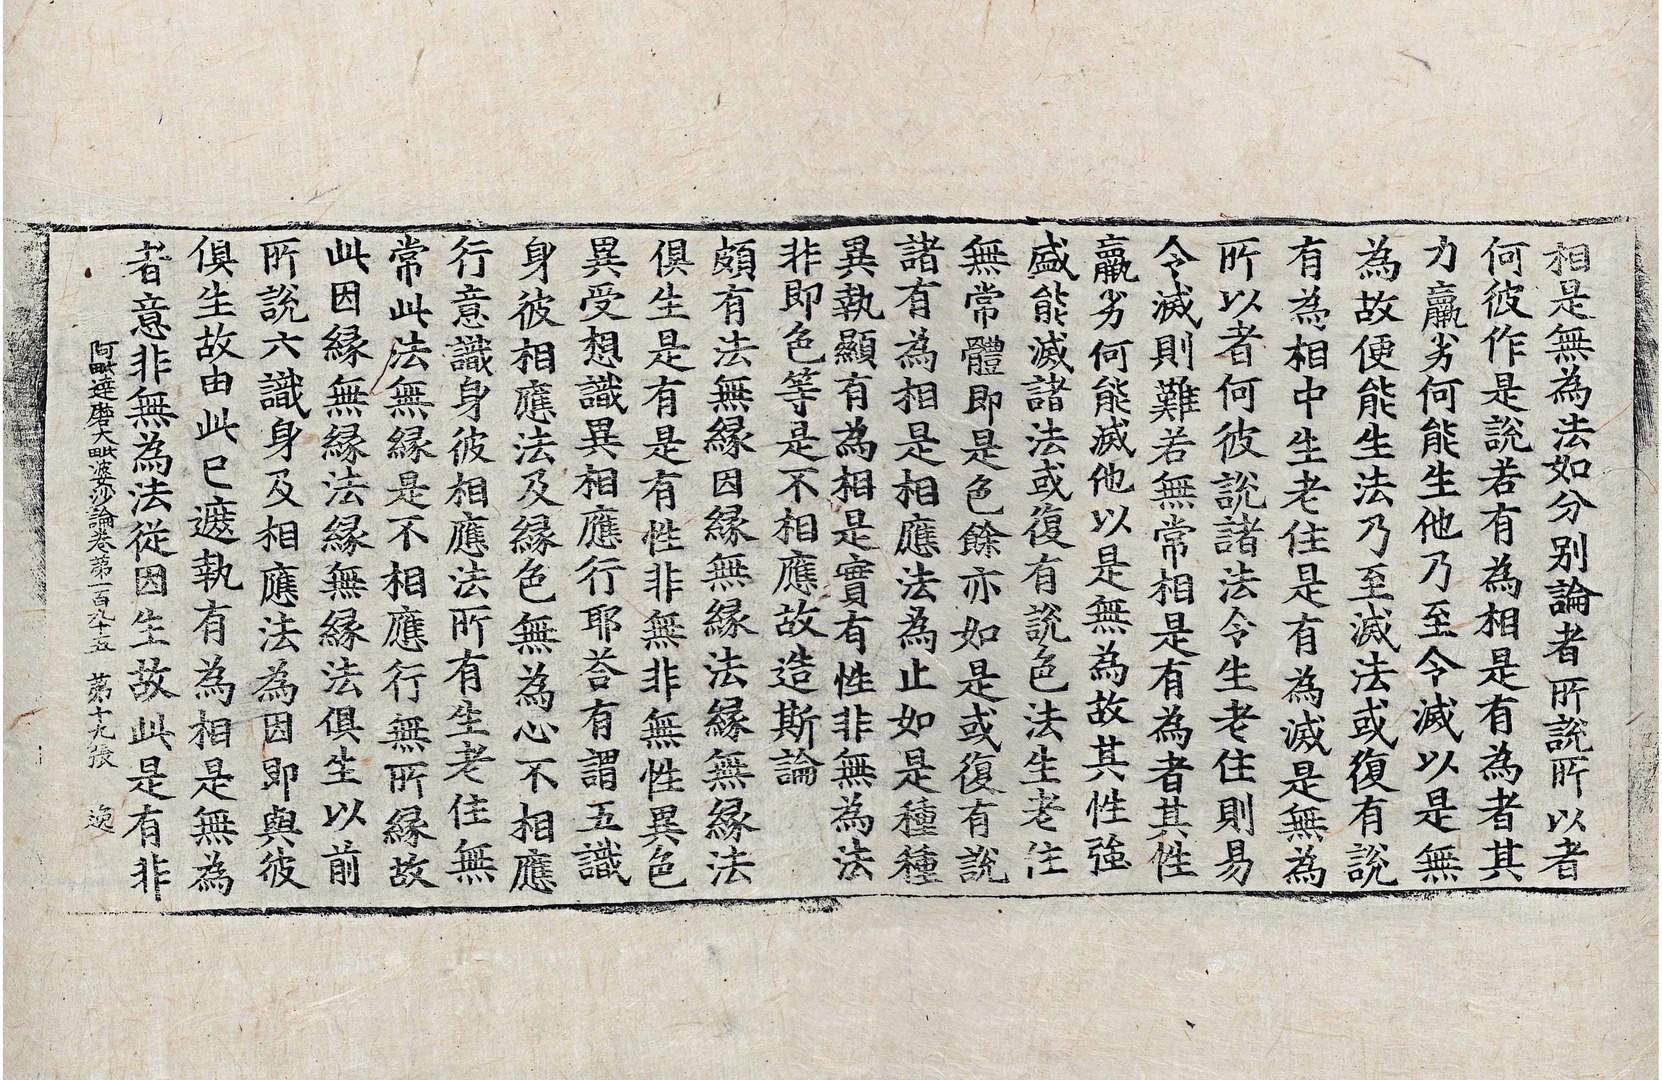 相是無為法如分别論者所說所以者
何彼作是說若有為相是有為者其
力羸劣何能生他乃至令滅以是無
為故便能生法乃至滅法或復有說
有為相中生老住是有為滅是無為
所以者何彼說諸法令生老住則易
令滅則難若無常相是有為者其性
羸劣何能滅他以是無為故其性強
盛能滅諸法或復有說色法生老住
無常體即是色餘亦如是或復有說
諸有為相是相應法為止如是種種
異執顯有為相是實有性非無為法
非即色等是不相應故造斯論
頗有法無緣因緣無緣法緣無緣法
俱生是有是有性非無非無性異色
異受想識異相應行耶荅有謂五識
身彼相應法及緣色無為心不相應
行意識身彼相應法所有生老住無
常此法無緣是不相應行無所緣故
此因緣無緣法緣無緣法俱生以前
所說六識身及相應法為因即與彼
俱生故由此已遮執有為相是無為
者意非無為法從因生故此是有非
阿毗達磨大毗婆沙論卷第一百九十五 第十九張 逸